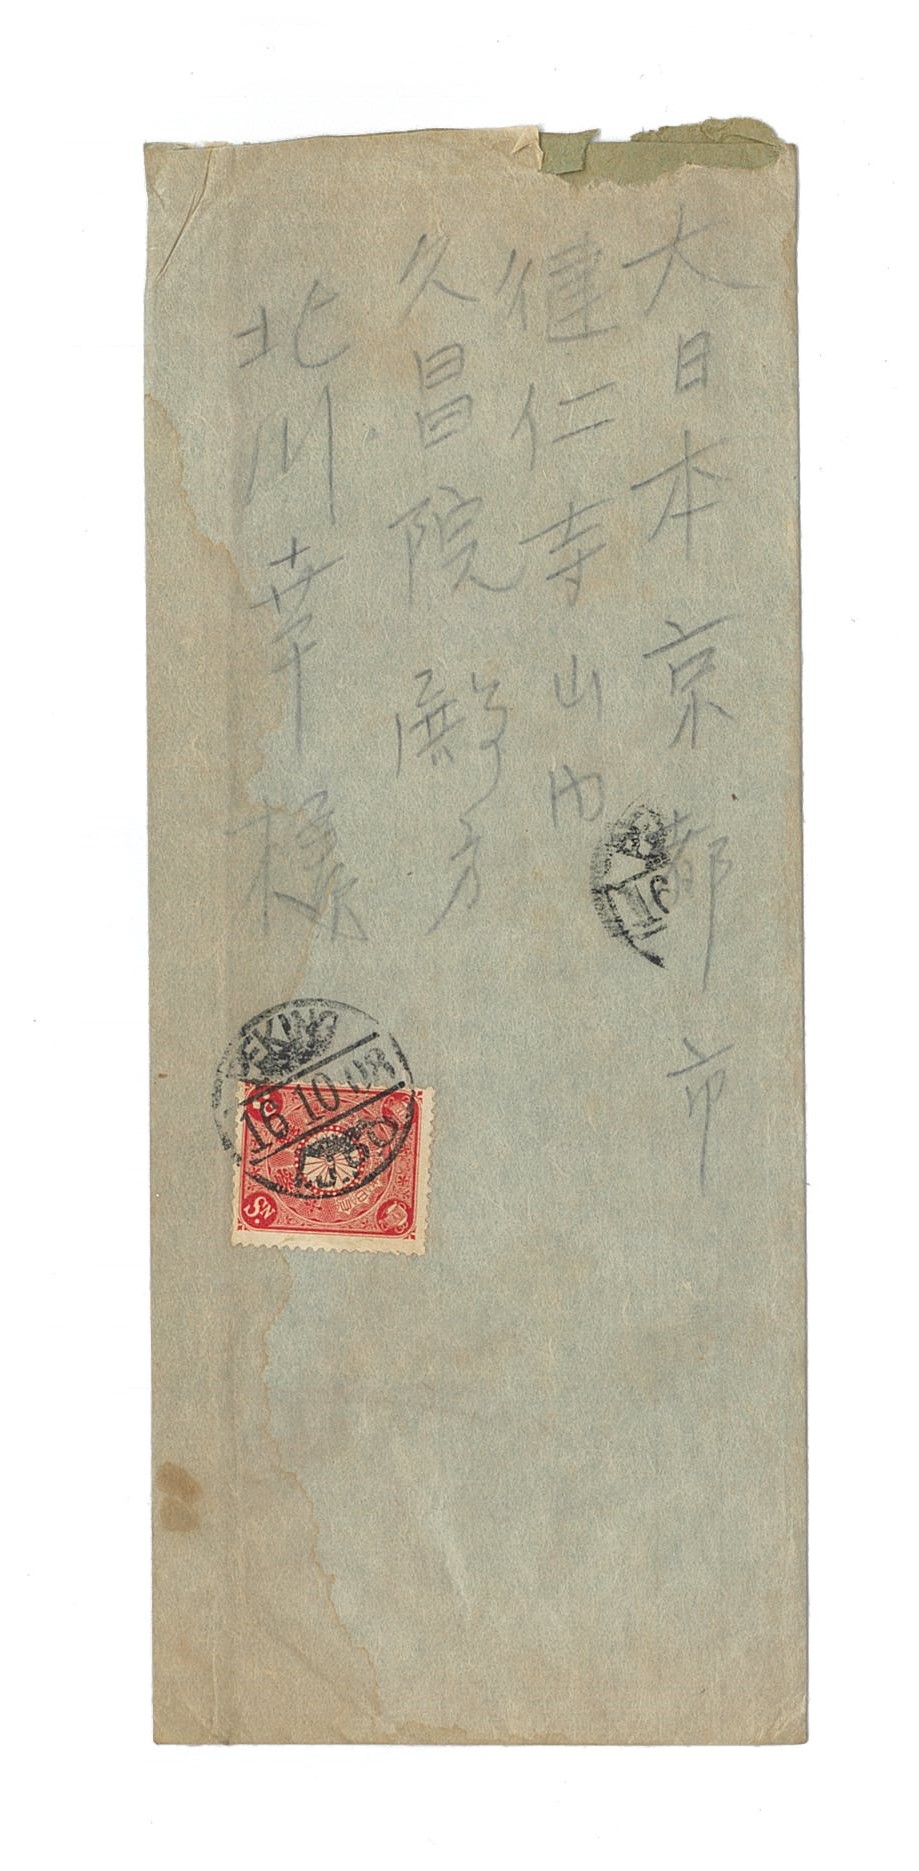 大日本京都市
健仁寺山内
久昌院殿方
北川幸様
PEKING
16 10 08
I.J.P.O.
3 Sn.
16